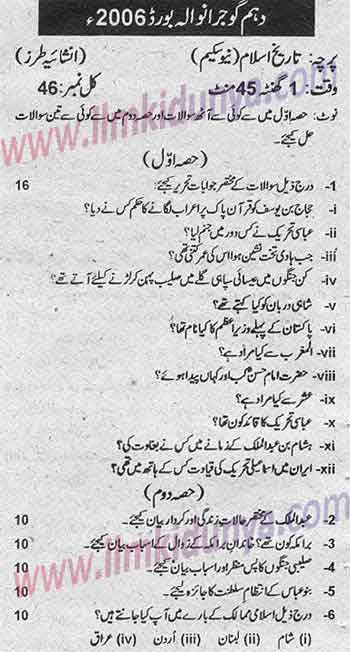 دہم گوجرانوالہ بورڈ 2006ء
پرچہ: تاریخ اسلام (نیو سکیم) (انشائیہ طرز)
وقت: 1 گھنٹہ 45 منٹ کل نمبر: 46
نوٹ: حصہ اوّل میں سے کوئی سے آٹھ سوالات اور حصہ دوم میں سے کوئی سے تین سوالات
حل کیجئے۔
(حصہ اوّل)
1- درج ذیل سوالات کے مختصر جوابات تحریر کیجئے: 16
i- حجاج بن یوسف کو قرآن پاک پر اعراب لگانے کا حکم کس نے دیا؟
ii- عباسی تحریک نے کس دور میں جنم لیا؟
iii- جب ہادی تخت نشین ہوا اس کی عمر کتنی تھی؟
iv- کن جنگوں میں عیسائی سپاہی گلے میں صلیب پہن کر لڑنے کیلئے آتے تھے؟
v- شاہی دربان کو کیا کہتے تھے؟
vi- پاکستان کے پہلے وزیر اعظم کا کیا نام تھا؟
vii- المغرب سے کیا مراد ہے؟
viii- حضرت امام حسنؓ کب اور کہاں پیدا ہوئے؟
ix- عشر سے کیا مراد ہے؟
x- عباسی تحریک کا قائد کون تھا؟
xi- ہشام بن عبدالملک کے زمانے میں کس نے بغاوت کی؟
xii- ایران میں اسماعیلی تحریک کی قیادت کس کے ہاتھ میں تھی؟
(حصہ دوم)
2- عبدالملک کے مختصر حالات زندگی اور کردار بیان کیجئے۔ 10
3- برامکہ کون تھے؟ خاندان برامکہ کے زوال کے اسباب بیان کیجئے۔ 10
4- صلیبی جنگوں کا پس منظر اور اسباب بیان کیجئے۔ 10
5- بنو عباس کے انتظام سلطنت کا جائزہ لیجئے۔ 10
6- درج ذیل اسلامی ممالک کے بارے میں آپ کیا جانتے ہیں؟ 10
(i) شام (ii) لبنان (iii) اُردن (iv) عراق
www.ilmkidunya.com
www.ilmkidunya.com